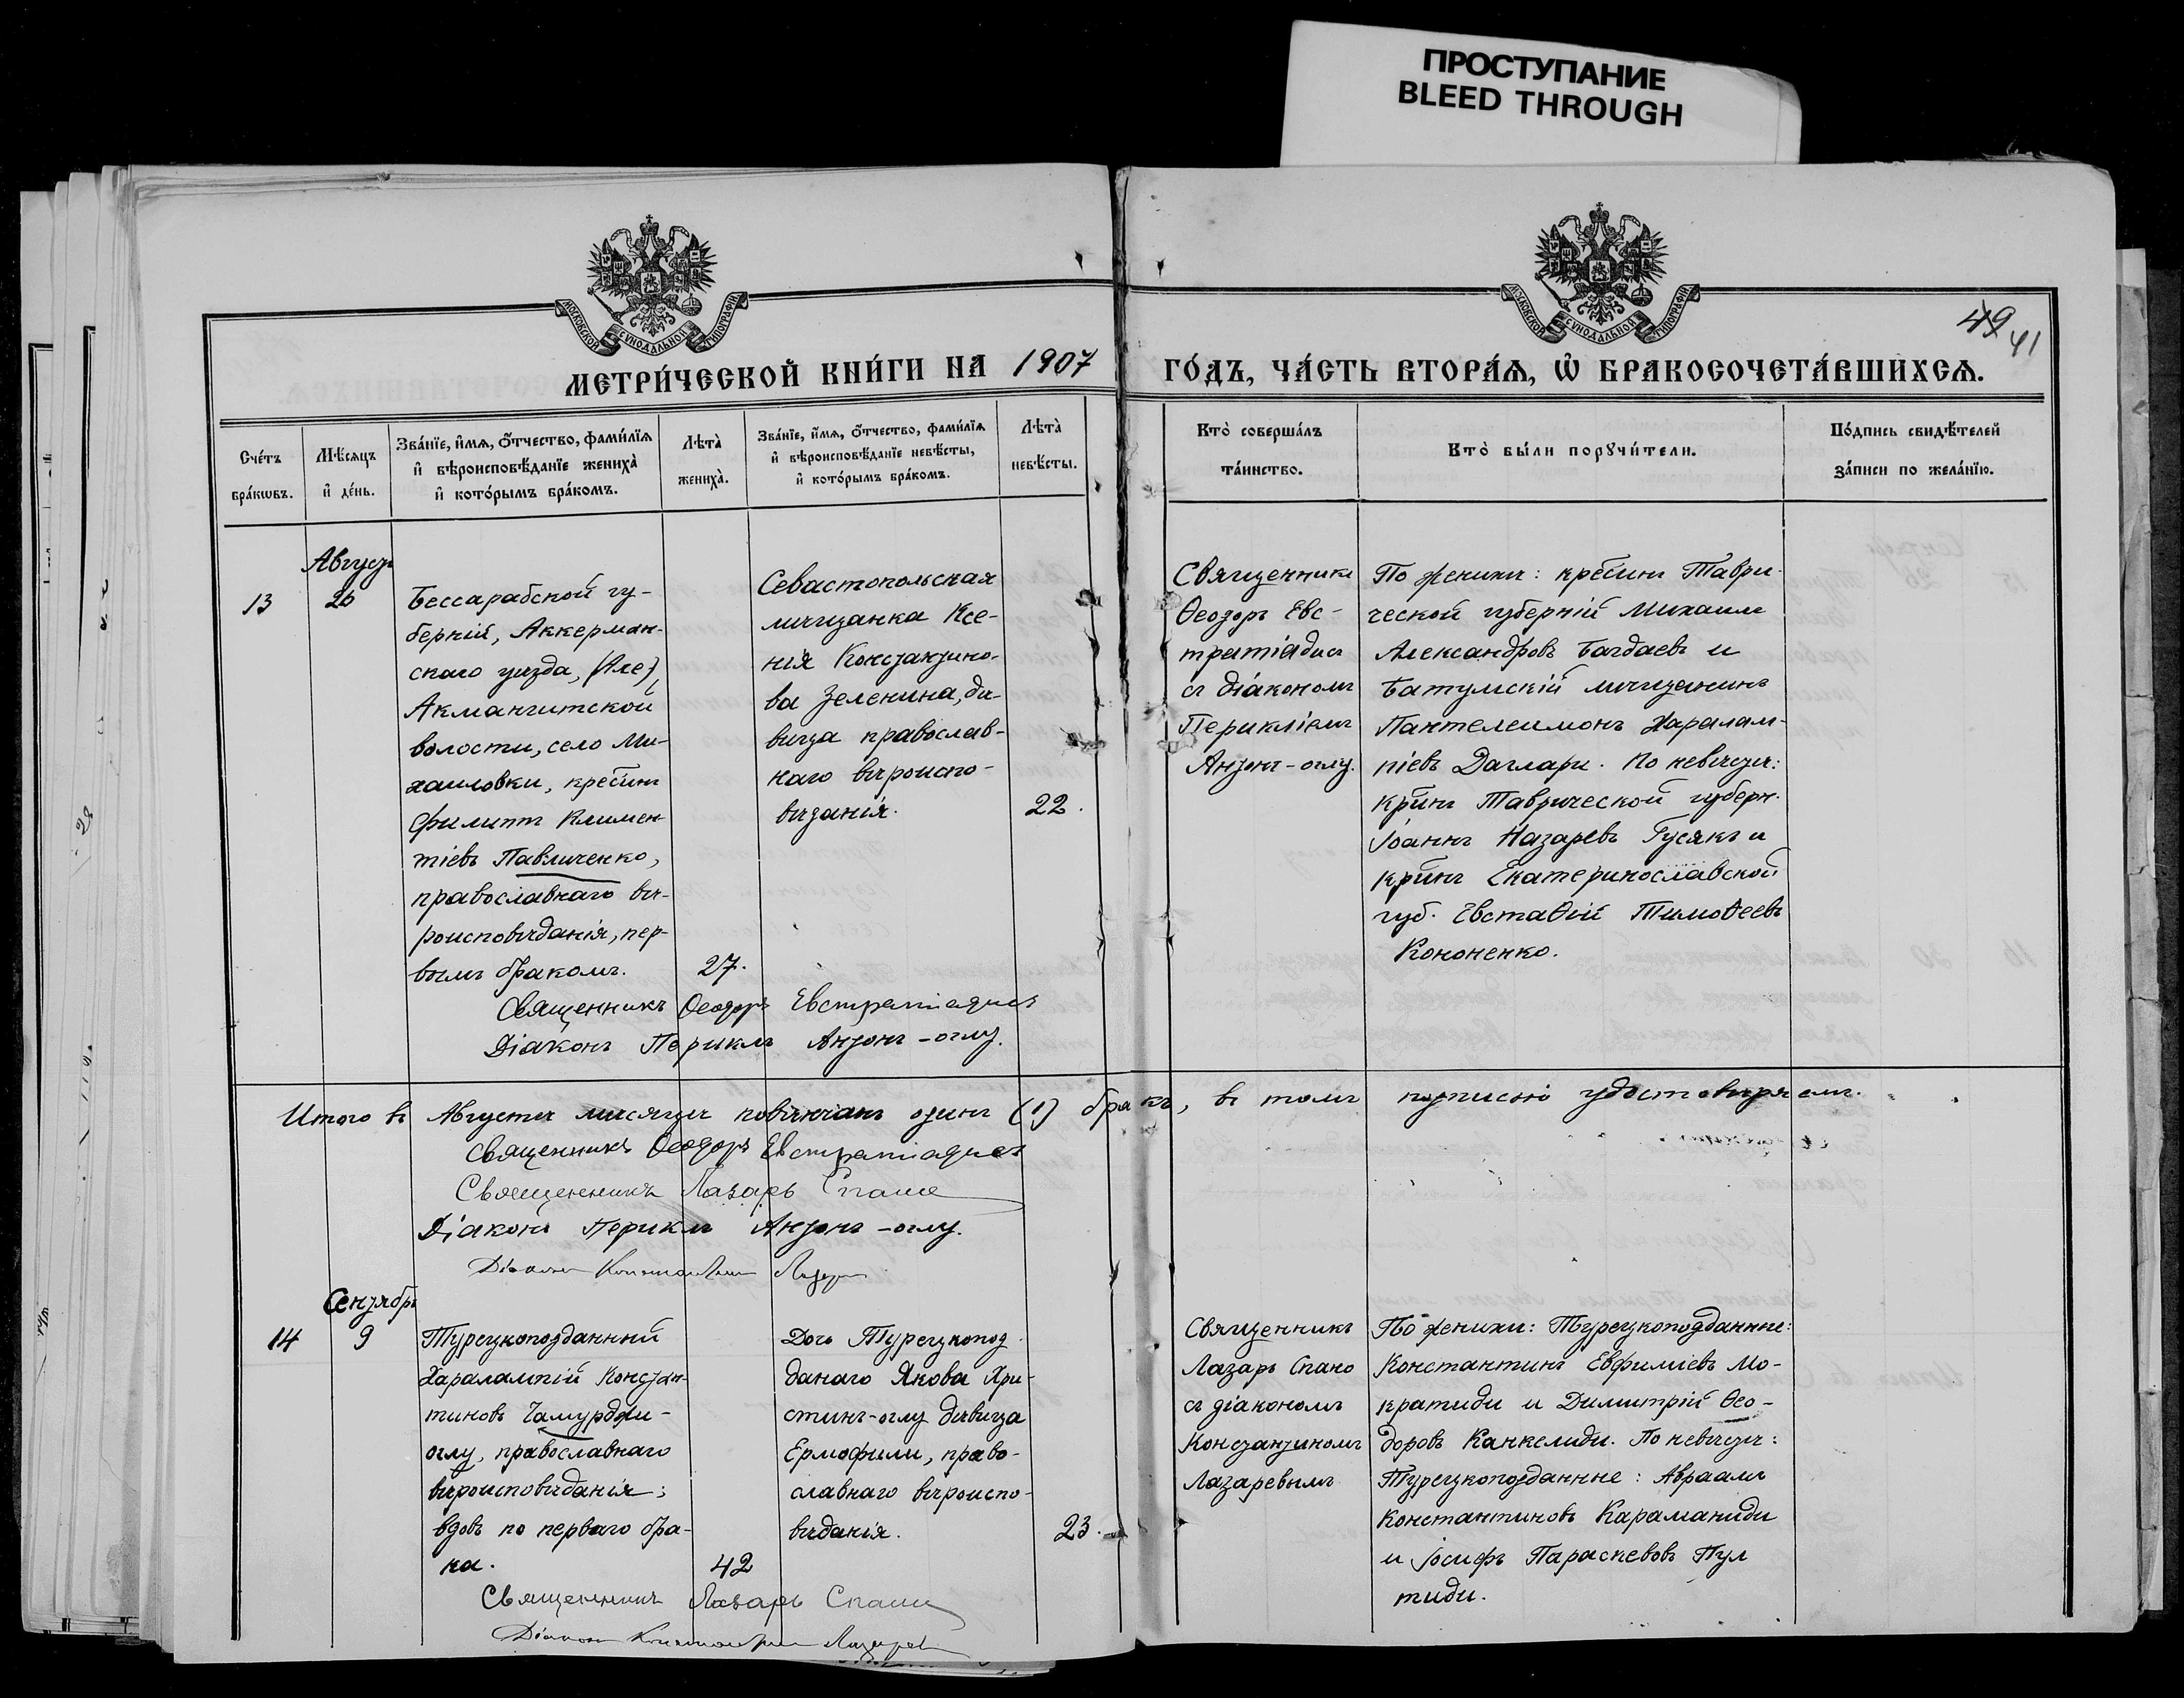 ПРОСТУПАНИЕ
BLEED THROUGH
МОСКОВСКОЙ СѴНОДАЛЬНОЙ ТИПОГРАФІИ
МОСКОВСКОЙ СѴНОДАЛЬНОЙ ТИПОГРАФІИ
49 41
МЕТРИ́ЧЕСКОЙ КНИ́ГИ НА 1907 ГО́ДЪ, ЧА́СТЬ ВТОРА́Ѧ, Ѡ҆ БРАКОСОЧЕТА́ВШИХСѦ.
Сче́тъ
бра́кѡвъ.
Мѣ́сяцъ
и҆ де́нь.
Зва́нїе, и҆́мѧ, ѻ҆́тчество, фами́лїѧ
и҆ вѣроисповѣ́данїе жениха̀
и҆ кото́рымъ бра́комъ.
Лѣта̀
жениха̀.
Зва́нїе, и҆́мѧ, ѻ҆́тчество, фами́лїѧ
и҆ вѣроисповѣ́данїе невѣ́сты,
и҆ кото́рымъ бра́комъ.
Лѣта̀
невѣ́сты.
Кто̀ соверша́лъ
та́инство.
Кто̀ бы́ли порꙋчи́тели.
По́дпись свидѣ́телей
за́писи по жела́нїю.
Августъ
13
26
Бессарабской гу-
берніи, Аккерман-
скаго уѣзда,
Акмангитской
волости, село Ми-
хаиловки, крес̃инъ
Филиппъ Климен-
тіевъ Павличенко,
православнаго вѣ-
роисповѣданія, пер-
вымъ бракомъ.
27.
Севастопольская
мѣщанка Ксе-
нія Константино-
ва Зеленина, дѣ-
вица православ-
наго вѣроиспо-
вѣданія.
22.
Священникъ
Ѳеодоръ Евс-
тратіадисъ
съ діакономъ
Перикліемъ
Антонъ-оглу.
По женихѣ: крес̃инъ Таври-
ческой губерніи Михаилъ
Александровъ Багдаевъ и
Батумскій мѣщанинъ
Пантелеимонъ Харалам-
піевъ Даглари. По невѣстѣ:
кр̃инъ Таврической губерн.
Іоаннъ Назаревъ Гусякъ и
кр̃инъ Екатеринославской
губ. Евстаѳій Тимоѳеевъ
Кононенко.
Священникъ Ѳеодоръ Евстратіадисъ
Діаконъ Периклъ Антонъ-оглу.
Итого въ Августѣ мѣсяцѣ повѣнчанъ одинъ (1) бракъ, въ томъ подписью удостовѣряемъ.
Священникъ Ѳеодоръ Евстратіадисъ
Священникъ Лазарь Спано
Діаконъ Периклъ Антонъ-оглу.
Діаконъ Константинъ Лазарев
Сентябрь
14
9
Турецкоподданный
Харалампій Констан-
тиновъ Чамурджи-
оглу, православнаго
вѣроисповѣданія;
вдовъ по перваго бра-
ка.
42
Дочь Турецкопод
данаго Якова Хри-
стинъ-оглу дѣвица
Ермофили, право-
славнаго вѣроиспо-
вѣданія.
23.
Священникъ
Лазарь Спано
съ діакономъ
Константиномъ
Лазаревымъ
По женихѣ: Турецкоподданные:
Константинъ Евфиміевъ Мо-
кратиди и Димитрій Ѳео-
доровъ Канкелиди. По невѣстѣ:
Турецкоподданные: Авраамъ
Константиновъ Караманиди
и Іосифъ Параскевовъ Пул
тиди.
Священникъ Лазарь Спано
Діаконъ Константинъ Лазарев